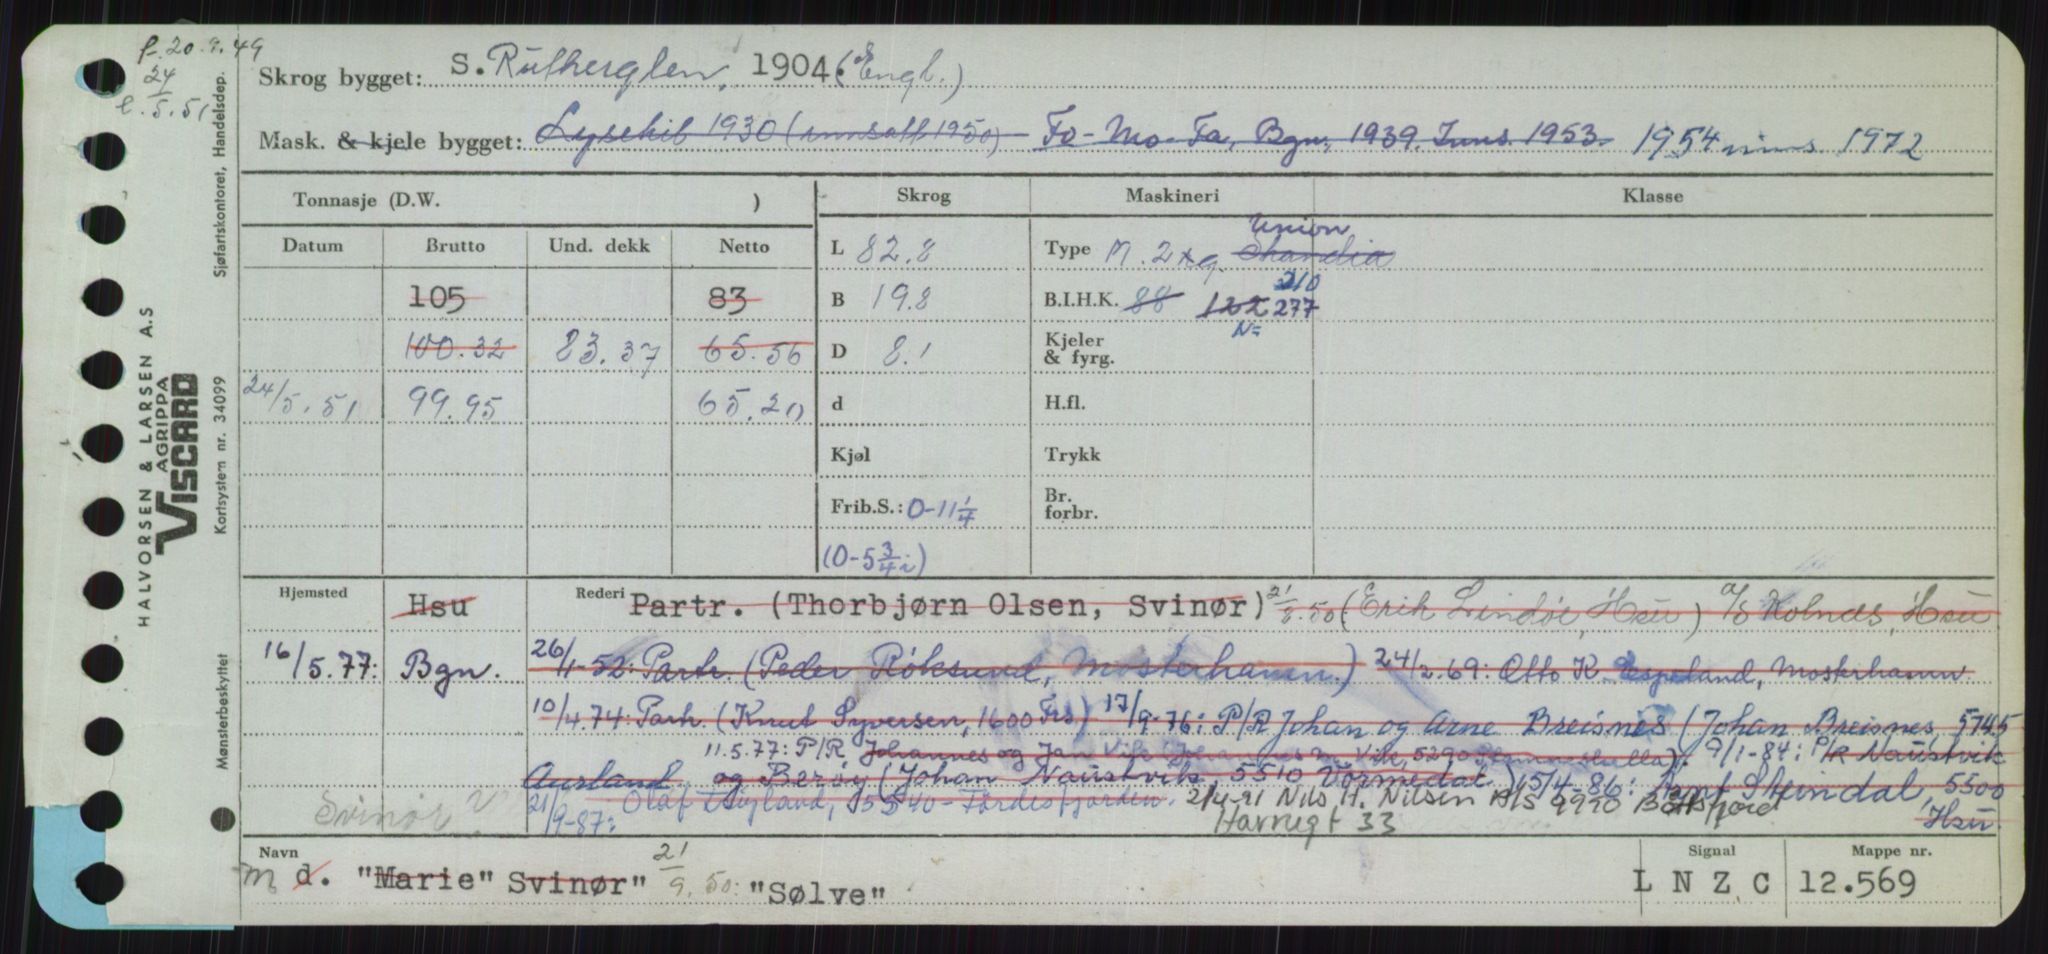 f. 20.9.49
24
5.51
Skrog bygget: S. Rutherglen, 1904 (Engl.)
Mask. & kjele bygget: Lysekil 1930 (innsatt 1950) Fo-Mo-Fa, Bgn, 1939. Inns. 1953. 1954 inns. 1972
Tonnasje (D.W. )
Skrog
Maskineri
Klasse
Datum Brutto Und. dekk Netto
105 83
100.32 83.37 65.56
24/5.51 99.95 65.20
L 82.8
B 19.8
D 8.1
d
Kjøl
Frib.S.: 0-11 1/4
(0-5 3/4 i)
Union
Type M. 2 tq. Skandia
210
B.I.H.K. 88 122 277
N=
Kjeler
& fyrg.
H.fl.
Trykk
Br.
forbr.
Hjemsted Hsu Rederi Partr. (Thorbjørn Olsen, Svinør) (Erik Lindøe, Hsu) A/S Holnes, Hsu
16/5.77: Bgn. 26/1-52: Partr. (Peder Røksund, Mosterhamn.) 24/2.69: Otto K. Espeland, Mosterhamn
10/4.74: Partr. (Knut Syversen, 1600 Frs) 17/9-76: P/R Johan og Arne Breisnes (Johan Breisnes, 5745
11.5.77: P/R Johannes og Jan Vik 9/1-84: P/R Naustvik
Ausland og Berøy (Johan Naustvik, 5510 Vormedal.) 15/4-86: Arnt Steindal, 5500
Hsu.
Svinør
21/9-87: Olaf Lygland, 5540-Førdesfjorden. 2/4-91 Nils H. Nilsen A/S 9990 Båtsfjord
Havnegt 33
Navn
m d. "Marie" Svinør" 21/9.50: "Sølve"
Signal
L N Z C
Mappe nr.
12.569
HALVORSEN & LARSEN A.S
AGRIPPA
VISCARD
Sjøfartskontoret, Handelsdep.
Kortsystem nr. 34099
Mønsterbeskyttet